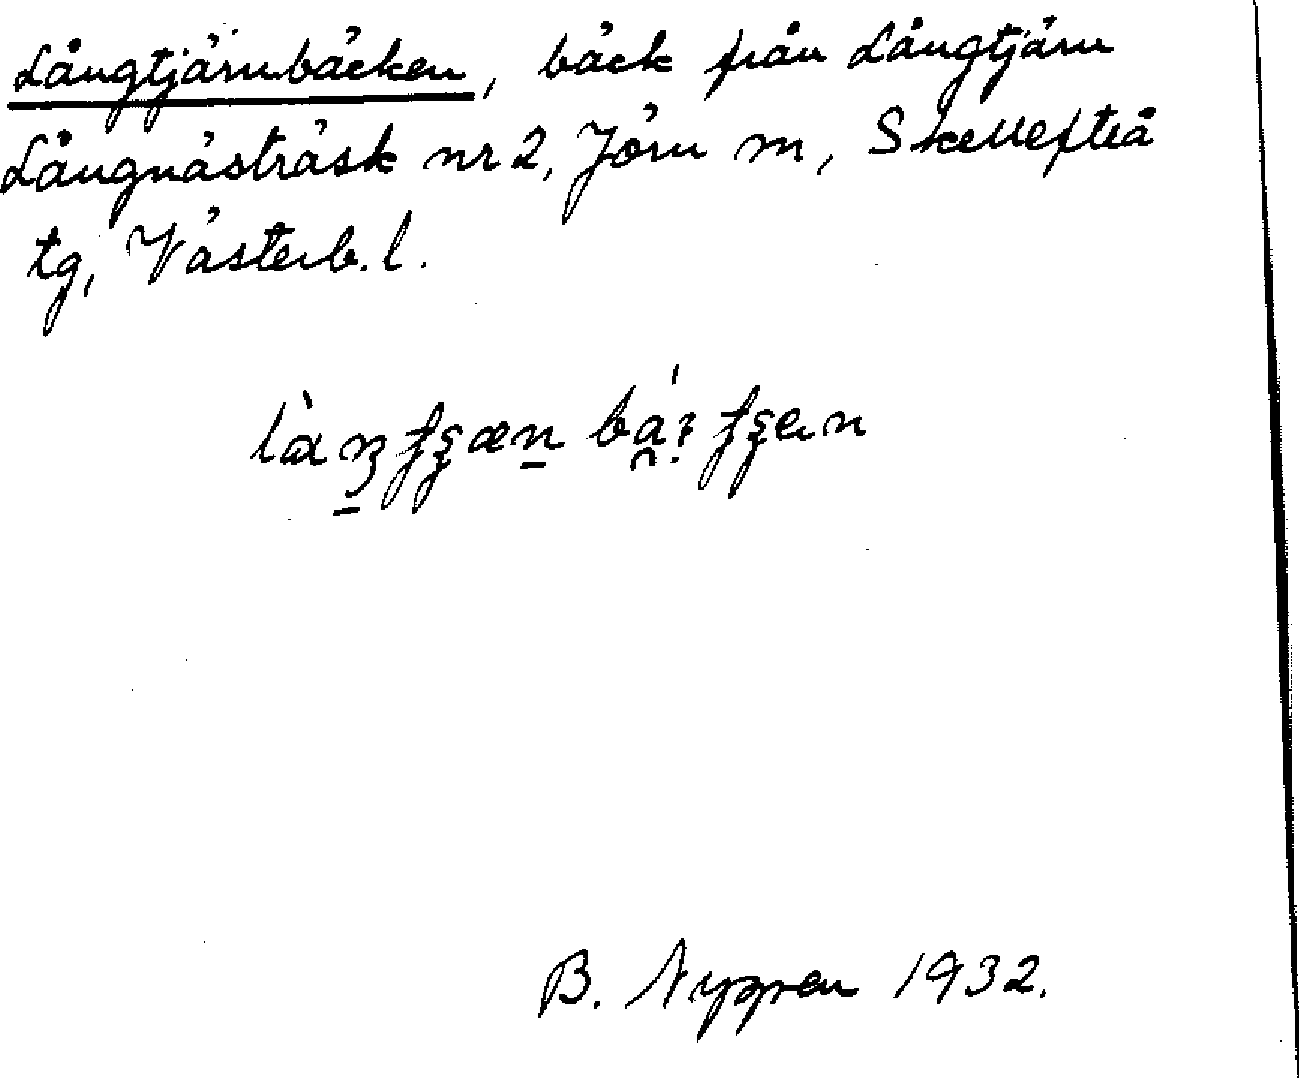 Långtjärnbäcken, bäck från Långtjärn
Långnästräsk nr 2, Jörn m, Skellefteå
tg, Västerb. l.
B. Nyppen 1932.